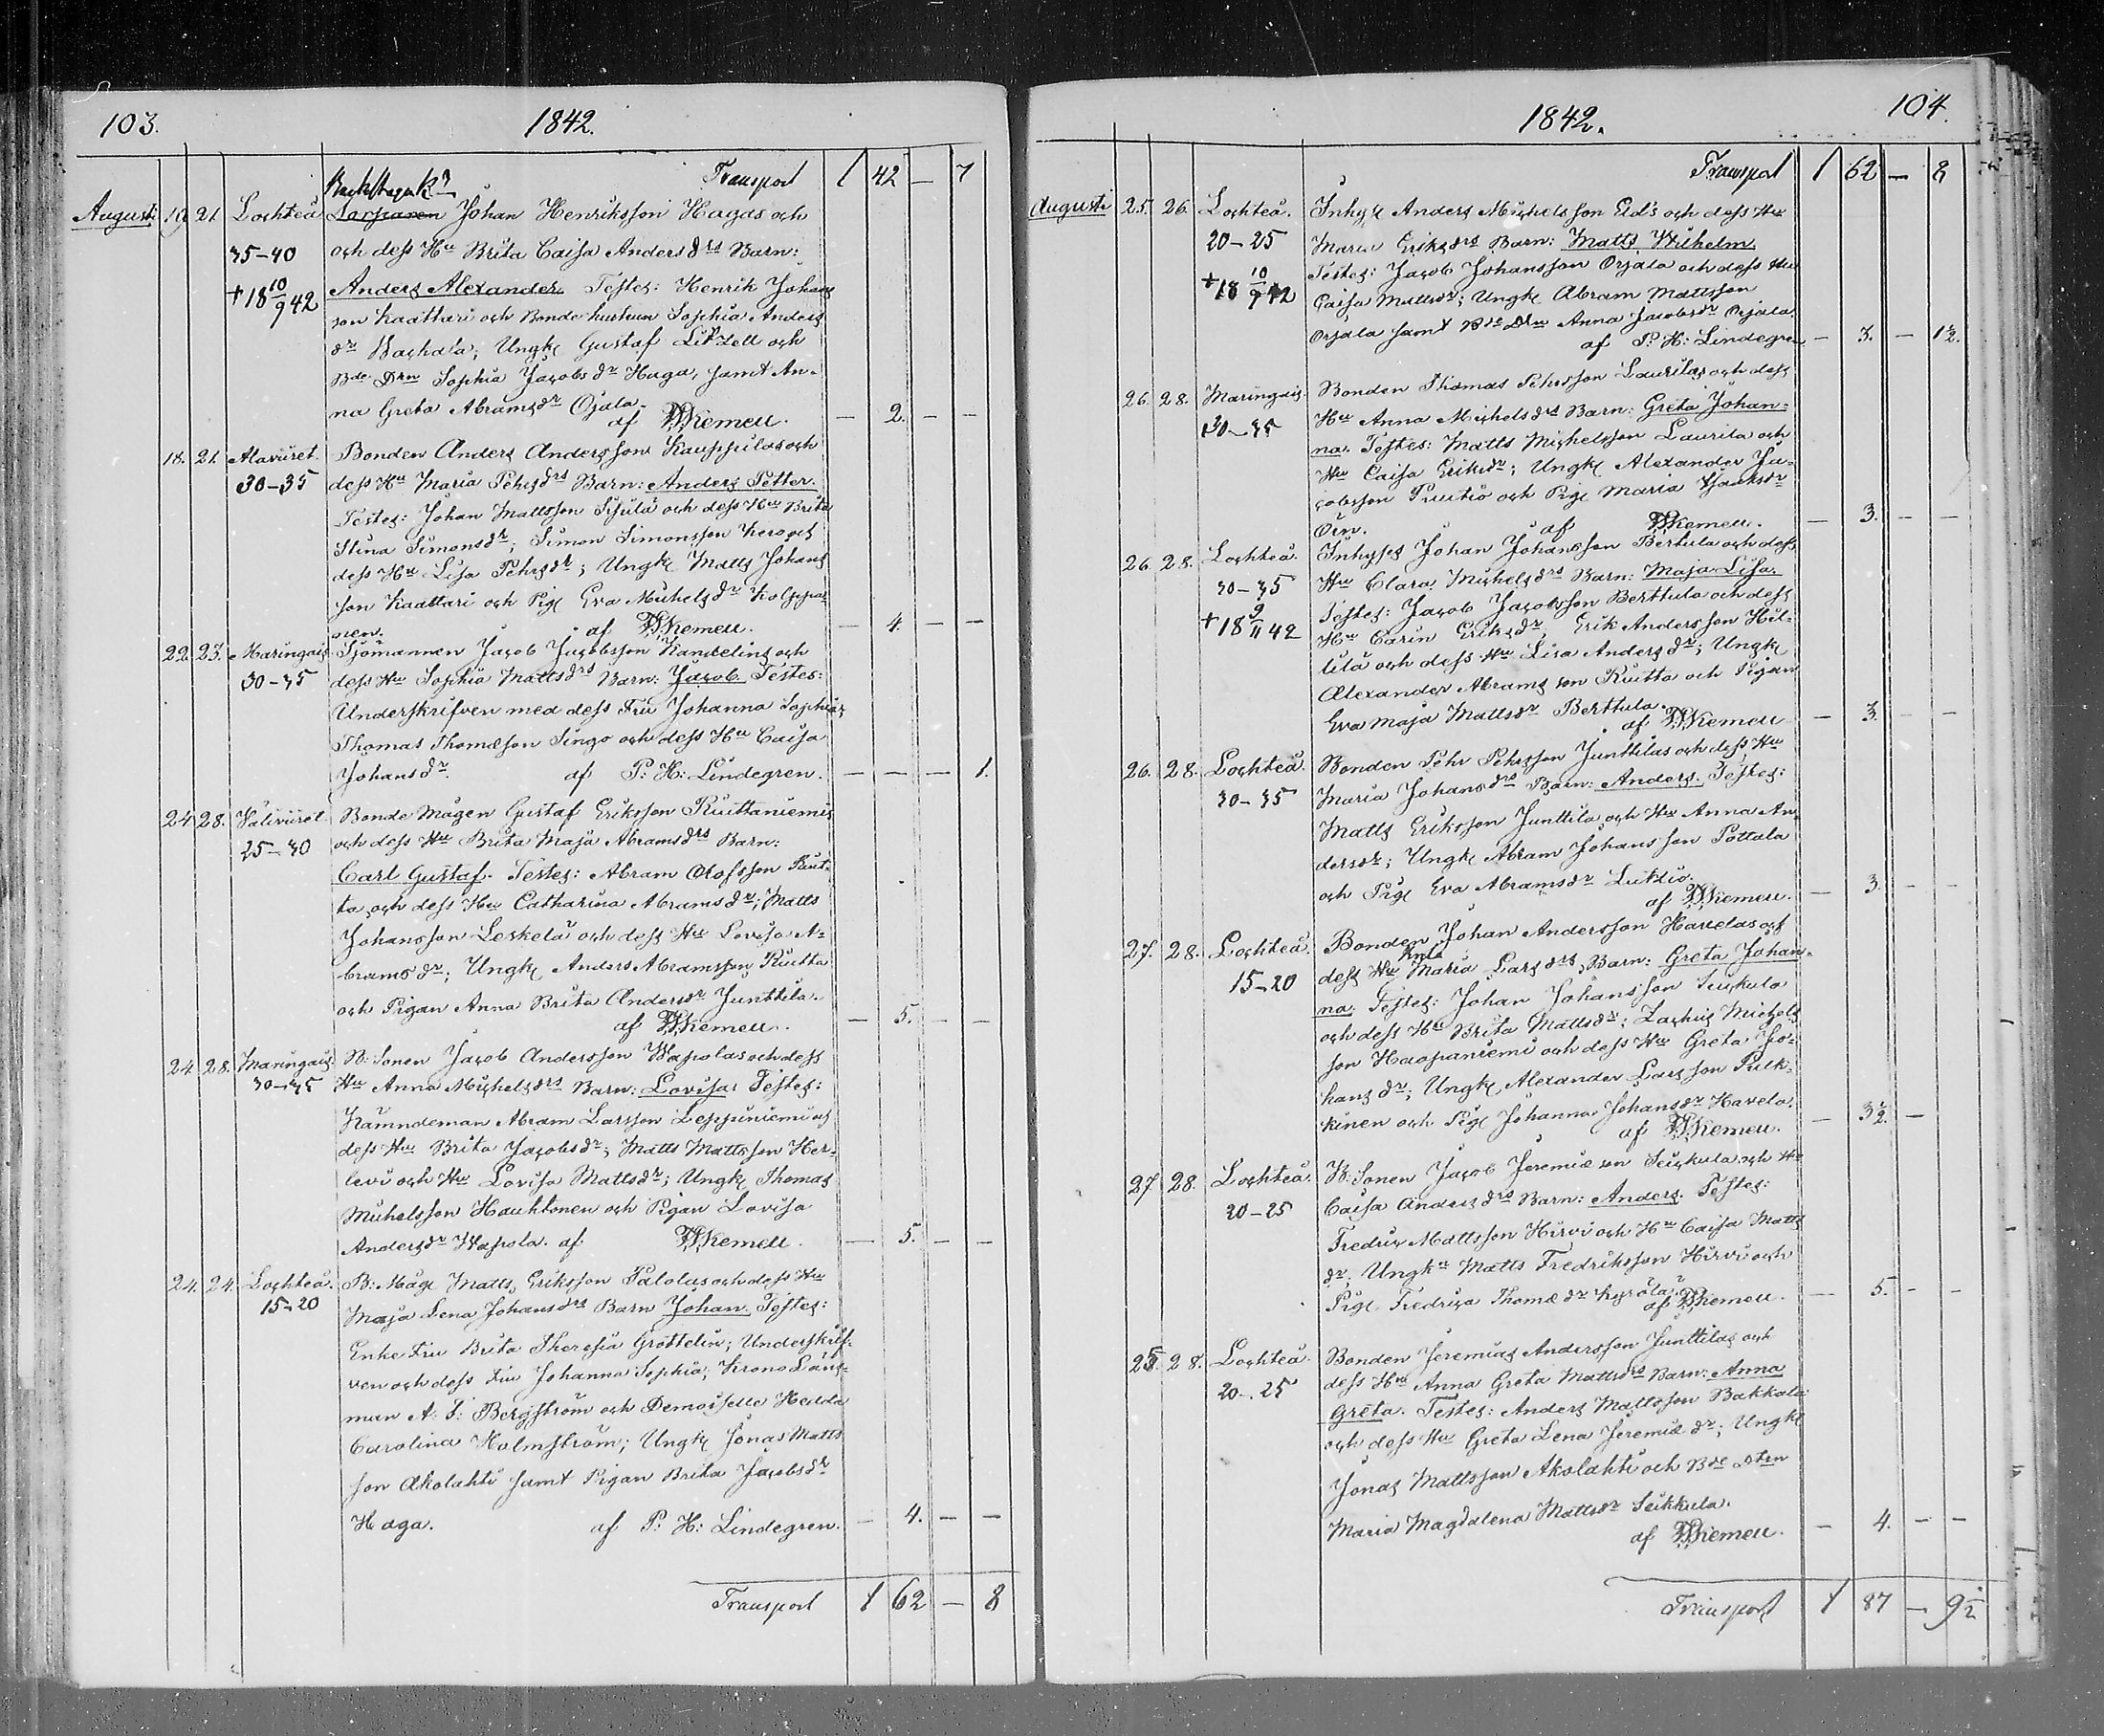 103.
1842.
Transport 1 42 — 7
Augusti 19 21 Lochteå Larsparen Johan Henriksson Hagas och
35-40 och dess Hu Brita Caisa Andersdrs Barn:
+18 10/9 42 Anders Alexander Testes: Henrik Johans
son Kaattari och Bonde hustrun Sophia Anders
dr Bachala; Ungk Gustaf Litzell och
Bde Drn Sophia Jacobs dr Haga, samt An-
na Greta Abramsdr Ojala.
af Kemell. — 2. — —
18. 21. Alaviiret. Bonden Anders Andersson Kauppilas och
30-35 dess Hu Maria Pehrsdrs Barn: Anders Petter.
Testes: Johan Mattsson Sipilä och dess Hu Brita
Stina Simonsdr; Simon Simonsson Kero och
dess Hu Lisa Pehrsdr; Ungk Matts Johans
son Kaattari och Pig Eva Michelsdr Kolppa-
nen. af Kemell. — 4. — —
22. 23. Maringais Sjömannen Jacob Jacobsson Kandelins och
30-35 dess Hu Sophia Mattsdrs Barn: Jacob Testes:
Underskrifven med dess Fru Johanna Sophia;
Thomas Thomæson Singo och dess Hu Caisa
Johansdr. af P: H: Lindegren. — — — 1.
24 28. Väliviiret. Bonde Mågen Gustaf Eriksson Ruittaniemis
25-30 och dess Hu Brita Maja Abramsdrs Barn:
Carl Gustaf. Testes: Abram Olofsson Ruit-
ta och dess Hu Catharina Abramsdr; Matts
Johansson Leskelä och dess Hu Lovisa A-
bramsdr; Ungk Anders Abramsson Ruitta
och Pigan Anna Brita Andersdr Junttila.
af Kemell. — 5. — —
24 28. Maringais. B: Sonen Jacob Andersson Wapolas och dess
30-35 Hu Anna Michelsdrs Barn: Lovisa: Testes:
Nämndeman Abram Larsson Leppiniemi och
dess Hu Brita Jacobsdr; Matts Mattsson Her-
levi och Hu Lovisa Mattsdr; Ungk Thomas
Michelsson Hauhtonen och Pigan Lovisa
Andersdr Wapola. af Kemell. — 5. — —
24. 24. Lochteå. B: Måg Matts Eriksson Palolas och dess Hu
15-20 Maja Lena Johansdrs Barn Johan. Testes:
Enke Fru Brita Theresia Grottelin; Underskrif-
ven och dess Fru Johanna Sophia; Krono Läns-
man A: J: Bergström och Demoiselle Hedda
Carolina Holmström; Ungk Jonas Matts
son Akolahti samt Pigan Brita Jacobsdr
Haga. af P: H: Lindegren. — 4. — —
Transport 1 62 — 8
1842.
104.
Transport 1 62 — 8
Augusti 25. 26. Lochteå. Inhys Anders Michelsson Eids och dess Hu
20-25 Maria Eriksdrs Barn: Matts Wilhelm.
+18 10/9 42 Testes: Jacob Johansson Orjala och dess Hu
Caisa Mattsdr; Ungk Abram Mattsson
Orjala samt Bde Drn Anna Jacobsdr Orjala.
af P: H: Lindegren — 3. — 1/2.
26. 28. Maringais. Bonden Thomas Pehrsson Laurilas och dess
30-35 Hu Anna Michelsdrs Barn: Greta Johan-
na. Testes: Matts Michelsson Laurila och
Hu Caisa Eriksdr; Ungk Alexander Ja-
cobsson Puutio och Pig Maria
Örn. af Kemell. — 3. — —
26. 28. Lochteå. Inhyses Johan Johansson Berttula och dess
30-35 Hu Clara Michelsdrs Barn: Maja Lisa.
+18 9/11 42 Testes: Jacob Jacobsson Berttula och dess
Hu Carin Eriksdr, Erik Andersson Hil-
lilä och dess Hu Lisa Andersdr; Ungk
Alexander Abrams son Ruitta och Pigan
Eva Maja Mattsdr Berttula.
af Kemell — 3. — —
26. 28. Lochteå. Bonden Pehr Pehrsson Junttilas och dess Hu
30-35 Maria Johansdrs Barn: Anders. Testes:
Matts Eriksson Junttila och Hu Anna An-
dersdr; Ungk Abram Johansson Pottala
och Pig Eva Abramsdr
af Kemell. — 3 — —
27. 28. Lochteå. Bonden Johan Andersson Havelas och
15-20 dess Hu Maria Larsdrs Barn: Greta Johan-
na. Testes: Johan Johansson Seickula
och dess Hu Brita Mattsdr; Zachris Michels
son Haapaniemi och dess Hu Greta Jo-
hansdr; Ungk Alexander Larsson Pulk-
kinen och Pig Johanna Johansdr Havela.
af Kemell. — 3 1/2. —
27 28. Lochteå. B: Sonen Jacob Jeremiæ son Seickula och Hu
20-25 Caisa Andersdrs Barn: Anders. Testes:
Fredric Mattsson Hirvi och Hu Caisa Matts
dr; Ungkn Matts Fredriksson Hirvi och
Pig Fredrica Thomædr Kyrölä.
af Kemell. — 5. — —
25. 28. Lochteå. Bonden Jeremias Andersson Junttilas och
20-25 dess Hu Anna Greta Mattsdrs Barn: Anna
Greta. Testes: Anders Mattsson Bakkala
och dess Hu Greta Lena Jeremiædr; Ungk
Jonas Mattsson Akolahti och Bde
Maria Magdalena Mattsdr Seikkula.
af Kemell. — 4. — —
Transport 1 87 — 9 1/2